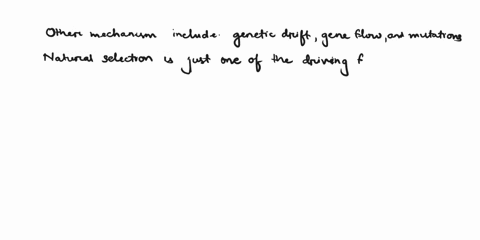 Other mechanism include genetic drift, gene flow, and mutations
Natural selection is just one of the driving f